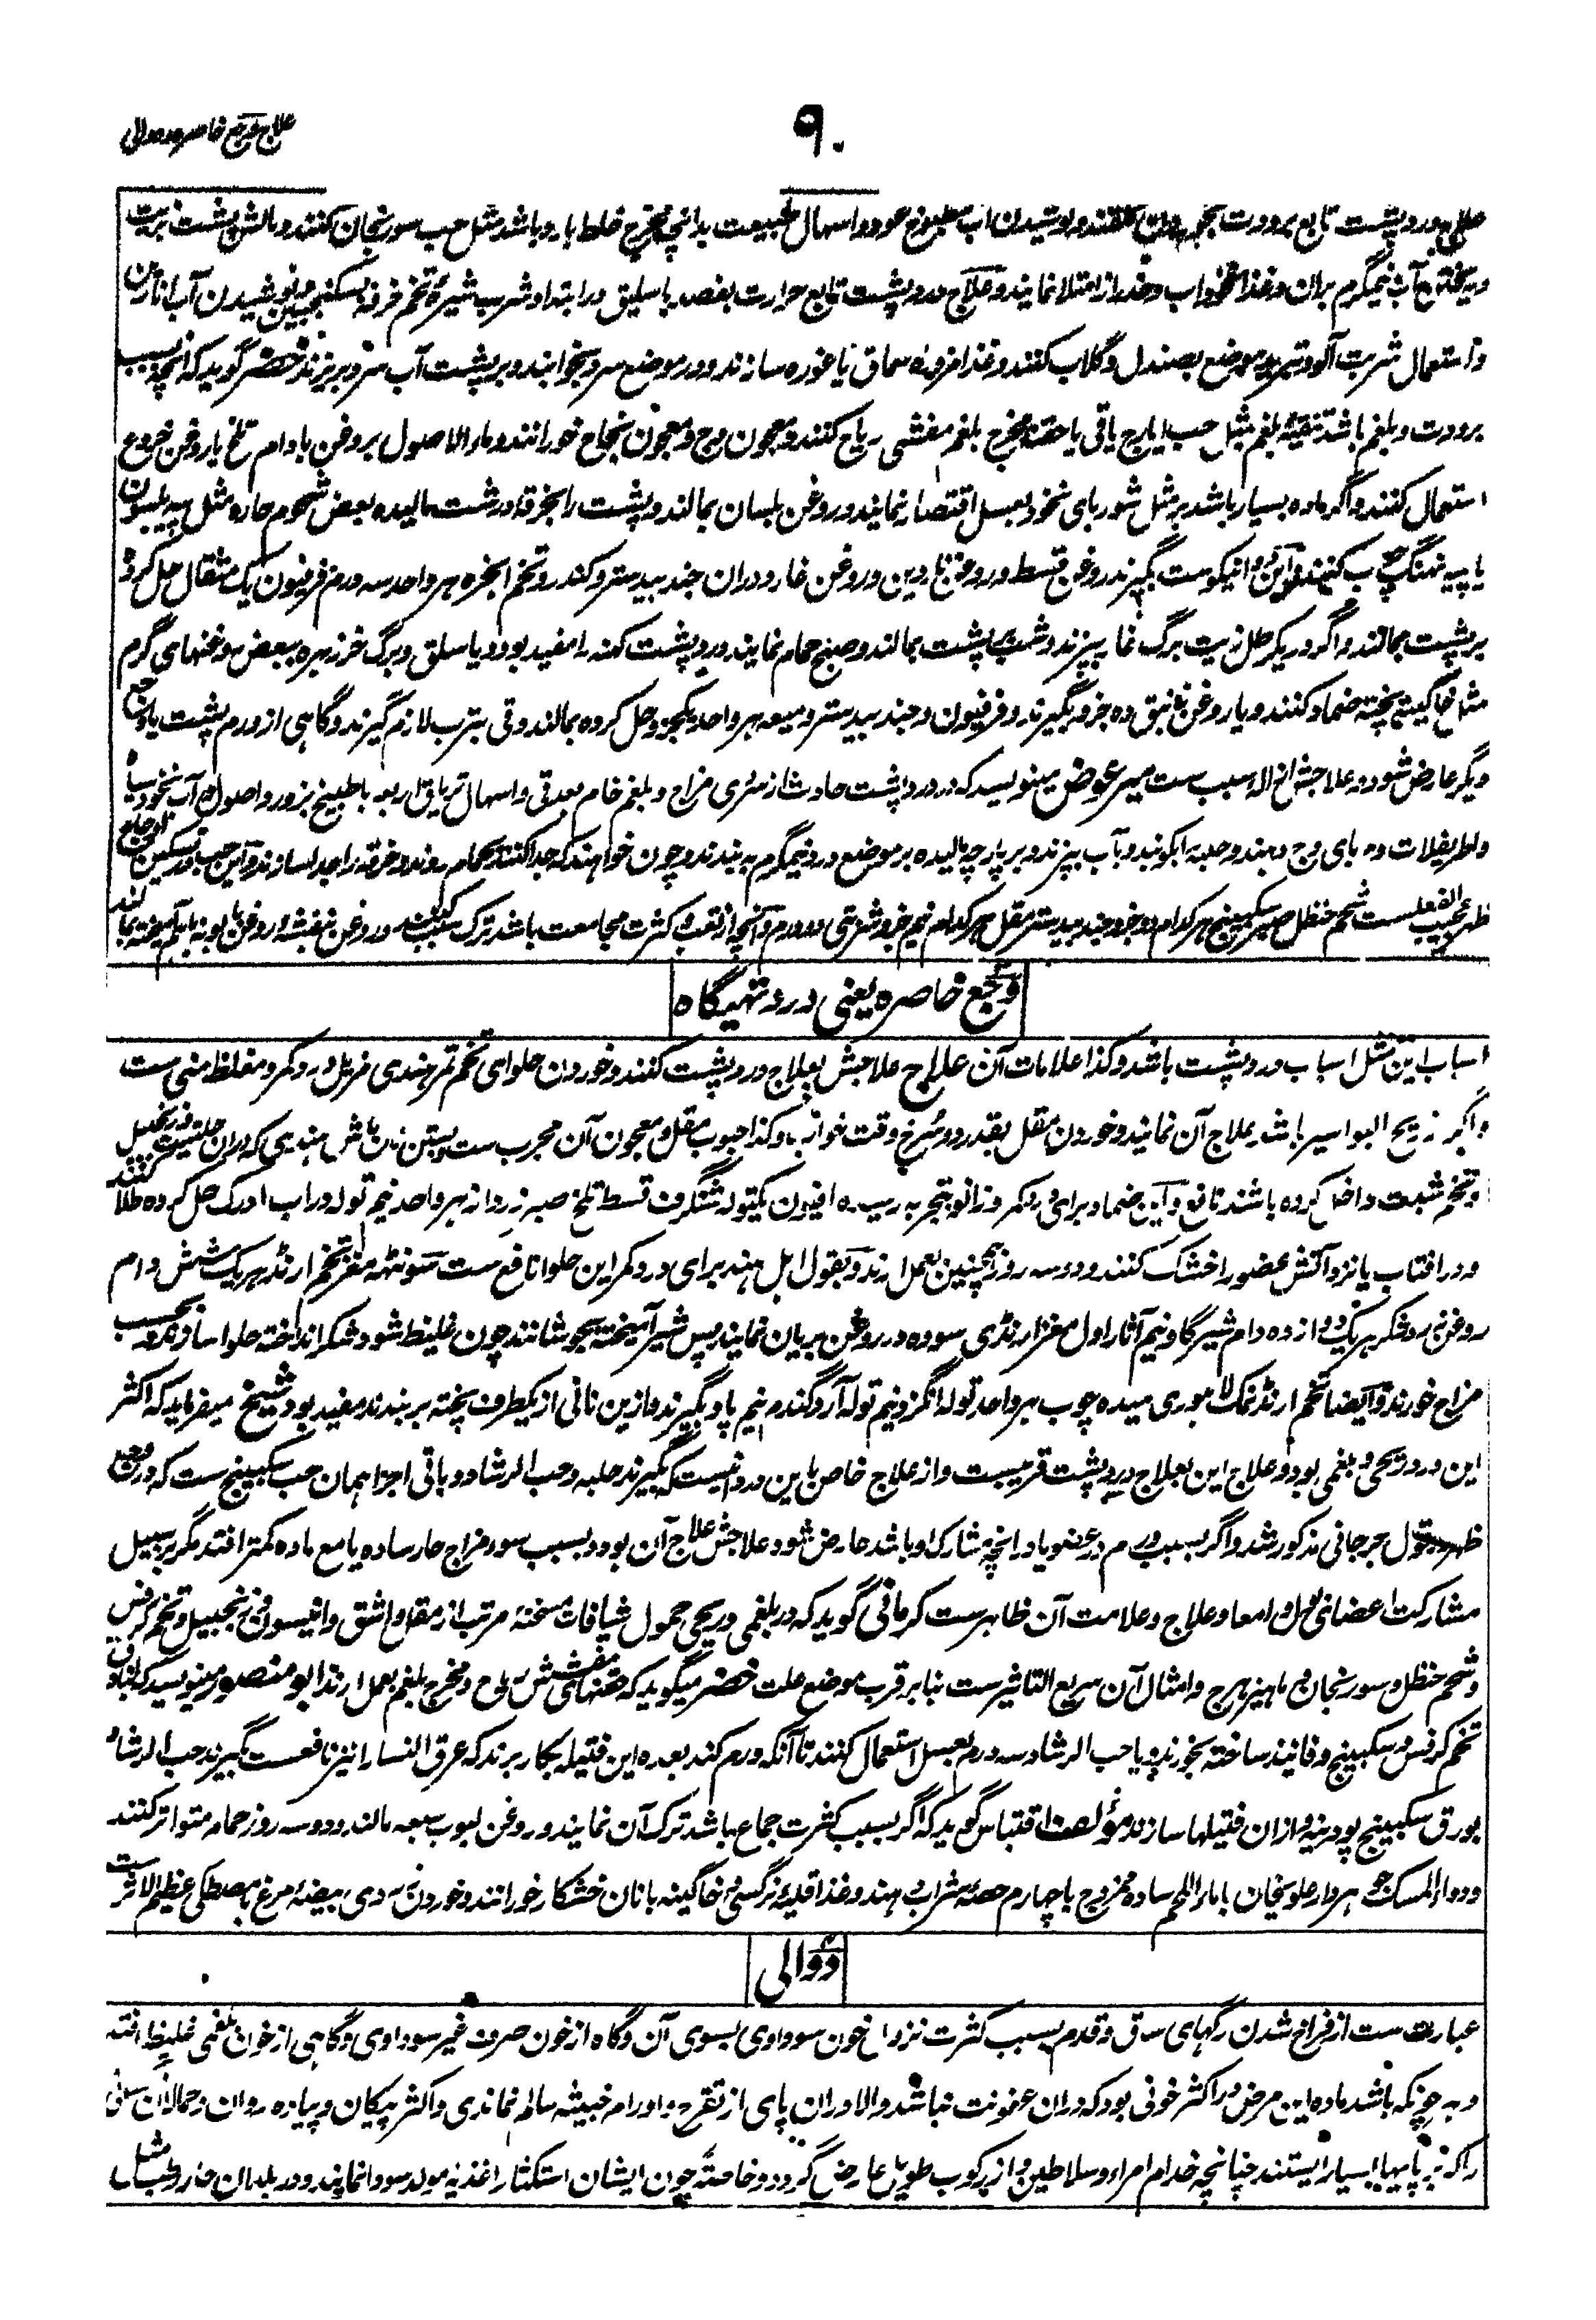 علاج وجع خاصره و دوالی
۹۰
علاج درد پشت تابع برودت بخورانیدن گلقند و نوشیدن آب مطبوخ عود و اسهال طبیعت بدانچه مخرج خلط بارد باشد مثل حب سورنجان کنند و مالش پشت بزیت
و ریختن آب نیمگرم بران و غذا نخودآب و حذر از امتلا نمایند و علاج درد پشت تابع حرارت بفصد باسلیق در ابتدا و شرب شیرهٔ تخم خرفه بسکنجبین و نوشیدن آب انارین
و استعمال شربت آلو و تبرید موضع بصندل و گلاب کنند و غذا مزوره سماق یا غوره سازند و در موضع سرد بخوابند و بر پشت آب سرد بریزند خضر گوید که آنچه بسبب
برودت و بلغم باشد تنقیهٔ بلغم بمثل حب ایارج یا قی یا حقنه مخرج بلغم مفشی ریاح کنند و معجون وج و معجون نجاح خورانند و ماء الاصول بروغن بادام تلخ یا روغن خروع
استعمال کنند و اگر ماده بسیار باشد بر مثل شوربای نخود بعسل اقتصار نمایند و روغن بلسان بمالند و پشت را بخرقه درشت مالیده بعض شحوم حاره مثل پیه
یا پیه نهنگ چرب کنند و این دوا نیکوست بگیرند روغن قسط و روغن ناردین و روغن غار و دران جندبیدستر و کندر و تخم انجره هر واحد سه درم فرفیون یک مثقال حل کرده
بر پشت بمالند و اگر در یکرطل زیت برگ غار بپزند و شب بر پشت بمالند و صبح حمام نمایند درد پشت کهنه را مفید بود و یا سلق و برگ خرزهره ببعض روغنهای گرم
مثل خاگینه پخته ضماد کنند و یا روغن زنبق ده جزو بگیرند و فرفیون و جندبیدستر و میعه هر واحد یکجزو حل کرده بمالند و قی بترب لازم گیرند و گاهی از ورم پشت یا وجع
دیگر عارض شود و علاجش ازاله سبب ست میر عوض مینویسد که در درد پشت حادث از سردی مزاج و بلغم خام بعد قی و اسهال تریاق اربعه با طبیخ بزور و اصول و آب نخود سیاه
و اطریفلات و مربای وج دهند و حلبه بکوبند و بآب بپزند و بر پارچه مالیده بر موضع درد نیمگرم ببندند و چون خواهند که جدا کنند بحمام روند و خرقه را جدا سازند و این حب در تسکین اوجاع
ظهر عجیب الفعلست شحم حنظل صبر سکبینج هر کدام دو جزو جندبیدستر مقل هر کدام نیم جزو شربتی دو درم و آنچه از تعب و کثرت مجامعت باشد ترک سبب کنند و روغن بنفشه و روغن بابونه باهم آمیخته بمالند
وجع خاصره یعنی درد تهیگاه
اسباب این مثل اسباب درد پشت باشد و کذا علامات آن علاج علاجش بعلاج درد پشت کنند و خوردن حلوای تخم تمر هندی مزیل درد کمر و مغلظ منی ست
و اگر از ریح البواسیر باشد بعلاج آن نمایند و خوردن مقل بقدر دو سرخ وقت خواب و کذا حبوب مقل و معجون آن مجرب ست و بستن نان ماش هندی که دران حلتیت و زنجبیل
و تخم شبت داخل کرده باشند نافع و این ضماد برای درد کمر و زانو بتجربه رسیده افیون یکتوله شنگرف قسط تلخ صبر زرد انه هر واحد نیم توله در آب ادرک حل کرده طلا کنند
و در آفتاب یا نزد آتش عضو را خشک کنند و دو سه روز همچنین بعمل آرند و بقول اهل هند برای درد کمر این حلوا نافع ست سونٹهه مغز تخم ارنڈ هر یک شش دام
روغن زرد شکر هر یک دوازده دام شیر گاو نیم آثار اول مغز ارنڈی سوده در روغن بریان نمایند پس شیر آمیخته بجوشانند چون غلیظ شود شکر انداخته حلوا سازند و بحسب
مزاج خورند و ایضا تخم ارنڈ نمک لاهوری میده چوب هر واحد توله انگزه نیم توله آرد گندم نیم پاو بگیرند و ازین نانی از یکطرف پخته بر بندند مفید بود شیخ میفرماید که اکثر
این درد ریحی و بلغمی بود و علاج این بعلاج درد پشت قریبست و از علاج خاص باین درد اینست که بگیرند حلبه و حب الرشاد و باقی اجزا همان حب سکبینج ست که در وجع
ظهر در قول جرجانی مذکور شد و اگر بسبب ورم در عضو یا در آنچه مشارک او باشد عارض شود علاجش علاج آن بود و بسبب سوء مزاج حار ساده یا مع ماده کمتر افتد مگر بر سبیل
مشارکت اعضای بول و امعا و علاج و علامت آن ظاهرست کرمانی گوید که در بلغمی و ریحی حمول شیافات مسخنه مرتب از مقل و اشق و انیسون و زنجبیل و تخم کرفس
و شحم حنظل و سورنجان و ماهیزهرج و امثال آن سریع التاثیرست بنا بر قرب موضع علت خضر میگوید که حقنهای مفشش ریاح و مخرج بلغم بعمل آرند ابو منصور مینویسد که بنادق
تخم کرفس و سکبینج و فانیذ ساخته بخورند و یا حب الرشاد سه درم بعسل استعمال کنند تا آنکه ورم کند بعده این فتیله بکار برند که عرق النسا را نیز نافعست بگیرند حب الرشاد
بورق سکبینج پودینه و ازان فتیلها سازند مؤلف اقتباس گوید که اگر بسبب کثرت جماع باشد ترک آن نمایند و روغن لبوب سبعه مالند و دو سه روز حمام متواتر کنند
و دواء المسک جواهردار خولنجان با ماء اللحم ساده ممزوج با چهارم حصهٔ شراب دهند و غذا قلیهٔ نرگسی و خاگینه با نان خشکار خورانند و خوردن زردی بیضهٔ مرغ با مصطکی عظیم الاثرست
دوالی
عبارت ست از فراخ شدن رگهای ساق و قدم بسبب کثرت نزول خون سوداوی بسوی آن و گاه از خون صرف غیر سوداوی و گاهی از خون بلغمی غلیظ افتد
و بهر چونکه باشد ماده این مرض در اکثر خونی بود که دران عفونت نباشد والا دران پای از تقرح و اورام خبیثه سالم نماندی و اکثر پیکان و پیاده روان و حمالان و کسانی
را که بر پایها بسیار ایستند چنانچه خدام امراء و سلاطین و از رکوب طویل عارض گردد و خاصة چون ایشان استکثار اغذیه مولد سودا نمایند و در بلدان حار رطب مثل